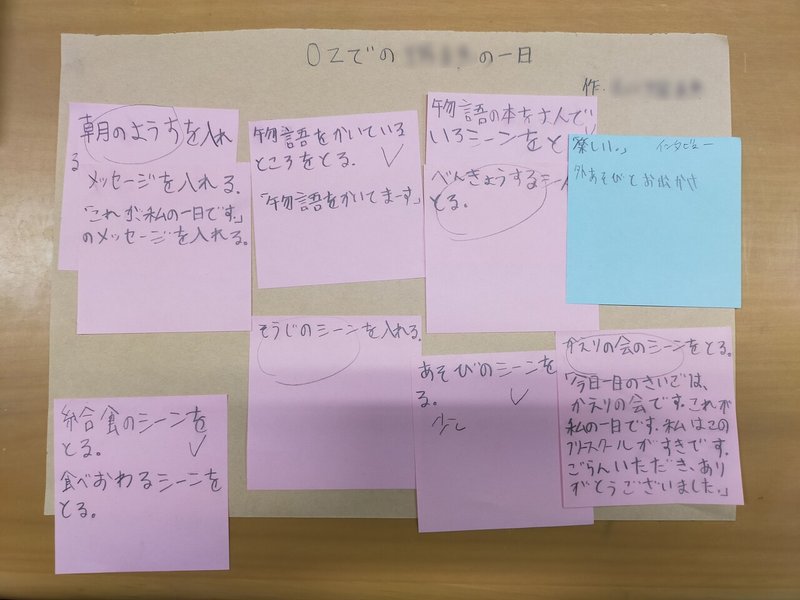 OZでの の一日
作.
朝のようすを入れ
る
メッセージを入れる。
「これが私の一日です。」
のメッセージを入れる。
物語をかいている
ところをとる。
「物語をかいてます」
物語の本をよんで
いるシーンをと
べんきょうするシーン
とる。
「楽しい。」 インタビュー
外あそびとお出かけ
そうじのシーンを入れる。
あそびのシーンを
る。
少し
かえりの会のシーンをとる。
「今日一日のさいごは、
かえりの会です。これが
私の一日です。私はこの
フリースクールがすきです。
ごらんいただき、あり
がとうございました。」
給食のシーンを
とる。
食べおわるシーンを
とる。